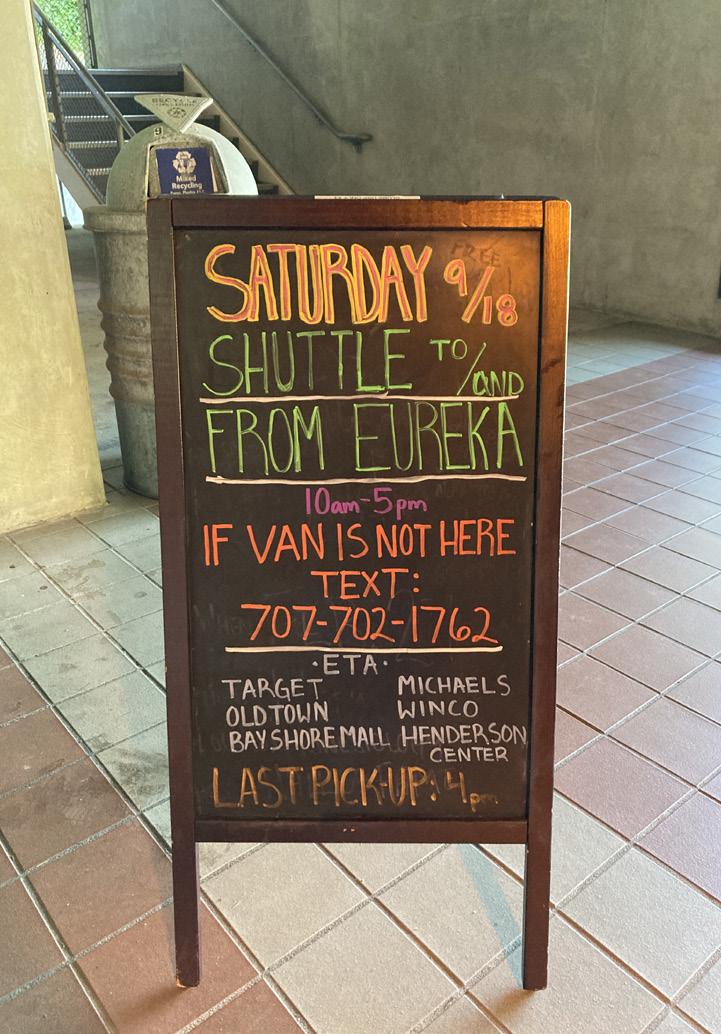 RECYCLE
9
Mixed
Recycling
FREE
SATURDAY 9/18
SHUTTLE TO/AND
FROM EUREKA
10am-5pm
IF VAN IS NOT HERE
TEXT:
707-702-1762
·ETA·
TARGET MICHAELS
OLD TOWN WINCO
BAYSHORE MALL HENDERSON
CENTER
LAST PICK-UP: 4pm